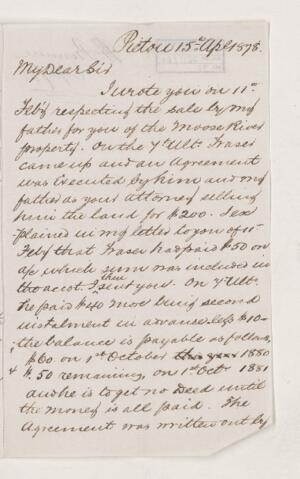 Pictou 15th Apl 1878.
My Dear Sir
I wrote you on 11th
Feby respecting the sale by my
father for you of the Moose River
property. On the 4th Ult. Fraser
came up and an Agreement
was Executed by him and my
father as your attorney selling
him the land for $200. I ex-
plained in my letter to you of 11th
Feby that Fraser had paid $50 on
a/c which sum was included in
the acct. I then sent you. On 4th Ult.
he paid $40 more being second
instalment in advance less $10—
the balance is payable as follows,
$60 on 1st October this year 1880
& $50 remaining, on 1st Octr 1881
and he is to get no Deed until
the money is all paid. The
Agreement was written out by